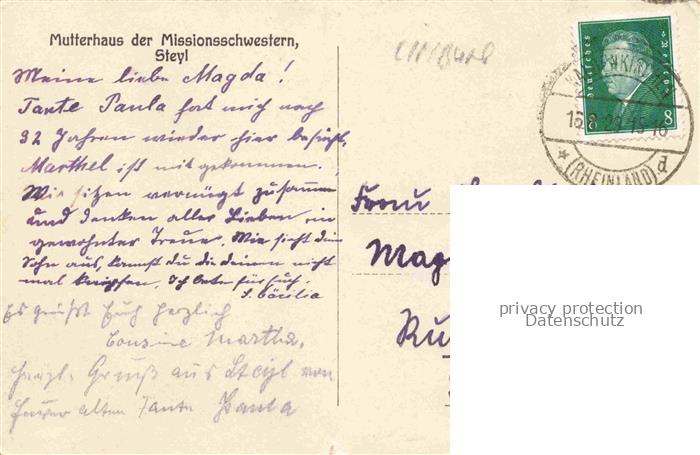 Mutterhaus der Missionsschwestern,
Steyl
Meine liebe Magda!
Tante Paula hat mich nach
32 Jahren wieder hier besucht,
Marthel ist mit gekommen.
Wir sitzen vernügt zusammen
und denken aller Lieben in
gewohnter Treue. Wie sieht dein
Sohn aus, kannst du die deinen nicht
mal knipsen. Ich bete für Euch.
S. Cäcilia
Es grüßt Euch herzlich
Cousine Martha.
Herzl. Gruß aus Steyl von
Eurer alten Tante Paula
Deutsches Reich
8 8
(RHEINLAND) d
Frau
Mag
Ru
privacy protection
Datenschutz